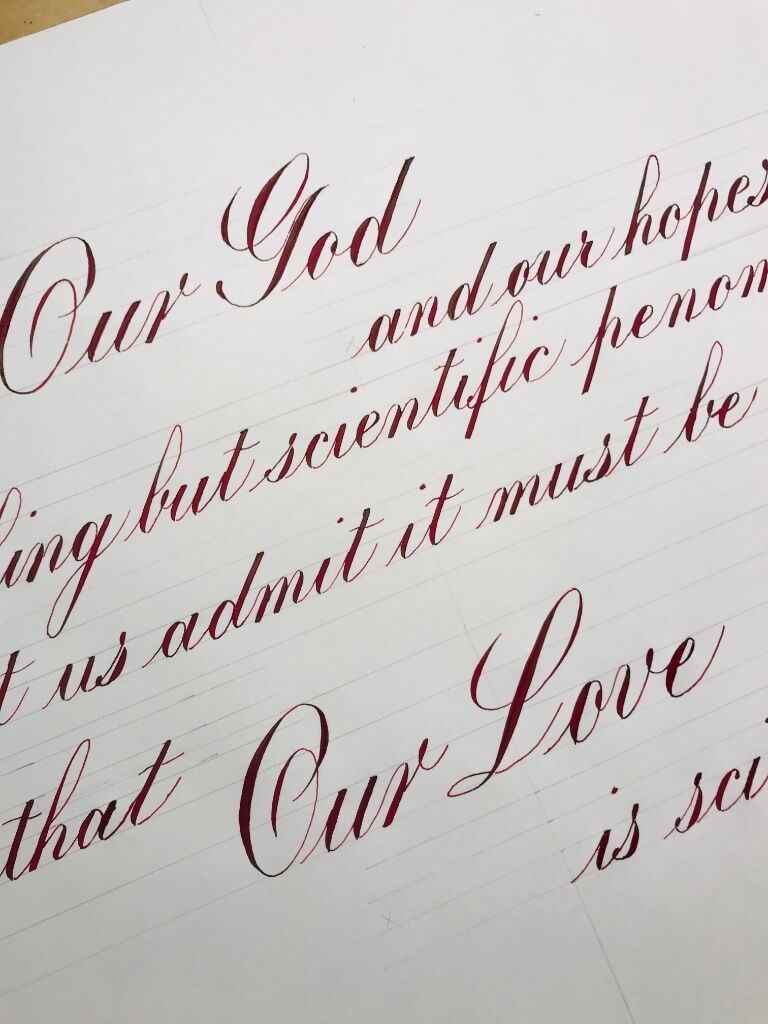 Our God
and our hopes
hing but scientific penom
t us admit it must be
that Our Love
is sci